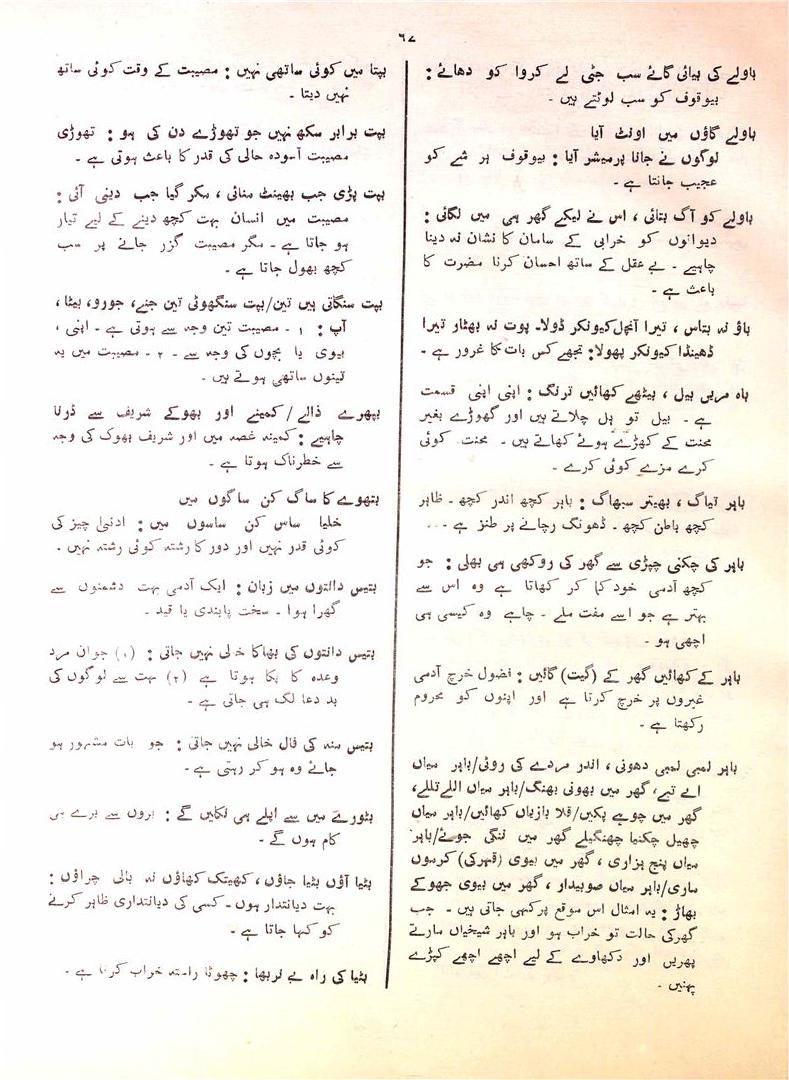 ٦٧
باولے کی بیائی گائے سب جٹی لے کروا کو دھائے :
بیوقوف کو سب لوٹتے ہیں ۔
باولے گاؤں میں اونٹ آیا
لوگوں نے جانا پرمیشر آیا : بیوقوف ہر شے کو
عجیب جانتا ہے ۔
باولے کو آگ بتائی ، اس نے لیکے گھر ہی میں لگائی :
دیوانوں کو خرابی کے سامان کا نشان نہ دینا
چاہیے ۔ بے عقل کے ساتھ احسان کرنا مضرت کا
باعث ہے ۔
باؤ نہ بتاس ، تیرا آنچل کیونکر ڈولا۔ پوت نہ بھتار تیرا
ڈھینڈا کیونکر پھولا: تجھے کس بات کا غرور ہے ۔
باہ مریں بیل ، بیٹھے کھائیں ترنگ : اپنی اپنی قسمت
ہے ۔ بیل تو ہل چلاتے ہیں اور گھوڑے بغیر
محنت کے کھڑے ہوئے کھاتے ہیں ۔ محنت کوئی
کرے مزے کوئی کرے ۔
باہر تیاگ ، بھیتر سبھاگ : باہر کچھ اندر کچھ ۔ ظاہر
کچھ باطن کچھ ۔ ڈھونگ رچانے پر طنز ہے ۔
باہر کی چکنی چپڑی سے گھر کی روکھی ہی بھلی : جو
کچھ آدمی خود کما کر کھاتا ہے وہ اس سے
بہتر ہے جو اسے مفت ملے ۔ چاہے وہ کیسی ہی
اچھی ہو ۔
باہر کے کھائیں گھر کے (گیت) گائیں : فضول خرچ آدمی
غیروں پر خرچ کرتا ہے اور اپنوں کو محروم
رکھتا ہے ۔
باہر لمبی لمبی دھوتی ، اندر مردے کی روٹی/باہر میاں
اے تیے، گھر میں بھونی بھنگ/باہر میاں اللے تللے،
گھر میں چوہے پکیں/قلا بازیاں کھائیں/باہر میاں
چھیل چکنیا چھنگیلے گھر میں ننگی جوئے/باہر
میاں پنج ہزاری ، گھر میں بیوی (قہرکی) کرموں
ماری/باہر میاں صوبیدار ، گھر میں بیوی جھوکے
بھاڑ : یہ امثال اس موقع پر کہی جاتی ہیں ۔ جب
گھر کی حالت تو خراب ہو اور باہر شیخیاں مارتے
پھریں اور دکھاوے کے لیے اچھے اچھے کپڑے
پہنیں ۔
بپتا میں کوئی ساتھی نہیں : مصیبت کے وقت کوئی ساتھ
نہیں دیتا ۔
بپت برابر سکھ نہیں جو تھوڑے دن کی ہو : تھوڑی
مصیبت آسودہ حالی کی قدر کا باعث ہوتی ہے ۔
بپت پڑی جب بھینٹ منائی ، مکر گیا جب دینی آئی :
مصیبت میں انسان بہت کچھ دینے کے لیے تیار
ہو جاتا ہے ۔ مگر مصیبت گزر جانے پر سب
کچھ بھول جاتا ہے ۔
بپت سنگاتی ہیں تین/بپت سنگھوتی تین جنے، جورو، بیٹا،
آپ : ۱ ۔ مصیبت تین وجہ سے ہوتی ہے ۔ اپنی ،
بیوی یا بچوں کی وجہ سے ۔ ۲ ۔ مصیبت میں یہ
تینوں ساتھی ہوتے ہیں ۔
بپھرے ذالے /کمینے اور بھوکے شریف سے ڈرنا
چاہیے : کمینہ غصہ میں اور شریف بھوک کی وجہ
سے خطرناک ہوتا ہے ۔
بتھوے کا ساگ کن ساگوں میں
خلیا ساس کن ساسوں میں : ادنیٰ چیز کی
کوئی قدر نہیں اور دور کا رشتہ کوئی رشتہ نہیں ۔
بتیس دانتوں میں زبان : ایک آدمی بہت دشمنوں سے
گھرا ہوا ۔ سخت پابندی یا قید ۔
بتیس دانتوں کی بھاکا خالی نہیں جاتی : (۱) جوان مرد
وعدہ کا پکا ہوتا ہے (۲) بہت سے لوگوں کی
بد دعا لگ ہی جاتی ہے ۔
بتیس منہ کی فال خالی نہیں جاتی : جو بات مشہور ہو
جائے وہ ہو کر رہتی ہے ۔
بٹورے میں سے اپلے ہی نکلیں گے : بروں سے برے ہی
کام ہوں گے ۔
بٹیا آؤں بٹیا جاؤں ، کھیتک کھاؤں نہ بالی چراؤں :
بہت دیانتدار ہوں ۔ کسی کی دیانتداری ظاہر کرنے
کو کہا جاتا ہے ۔
بٹیا کی راہ بے : چھوٹا راستہ خراب کرتا ہے ۔